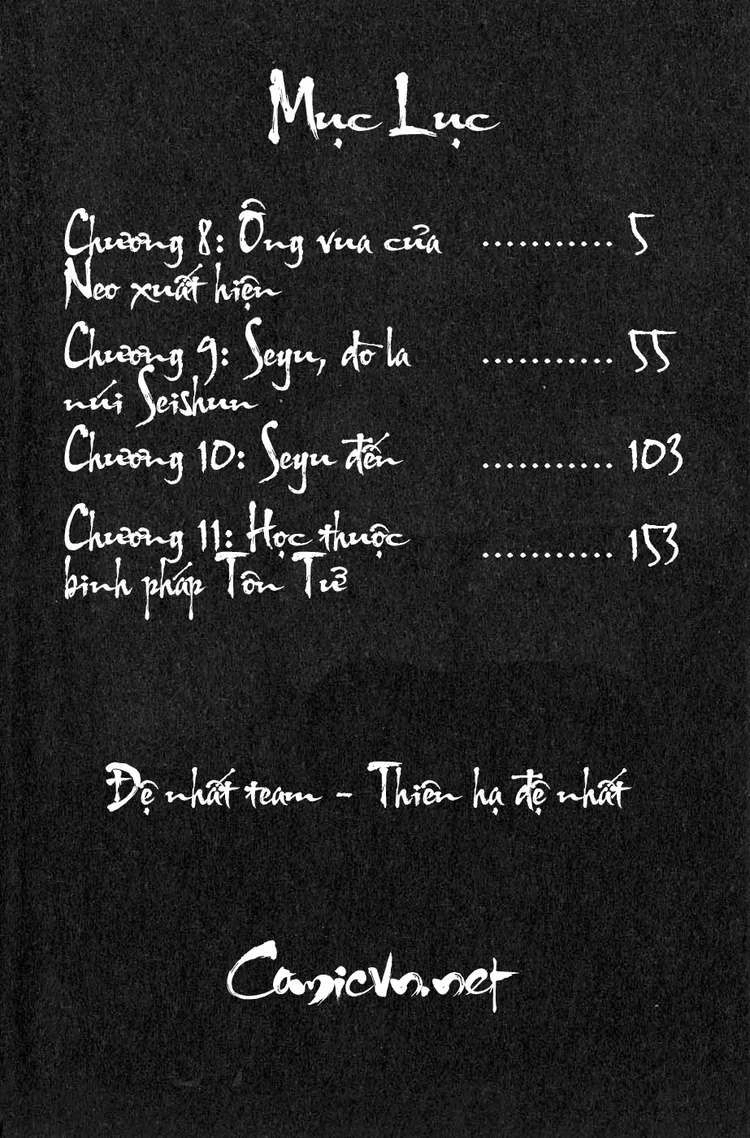 Mục Lục
Chương 8: Ông vua của ........... 5
Neo xuất hiện
Chương 9: Seyu, đo la ........... 55
núi Seishun
Chương 10: Seyu đến ........... 103
Chương 11: Học thuộc ........... 153
binh pháp Tôn Tử
Đệ nhất team - Thiên hạ đệ nhất
Comicvn.net